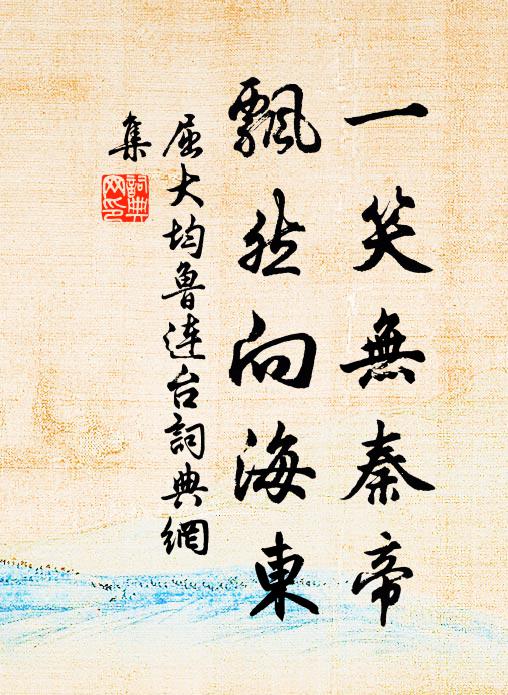 一笑無秦帝
飄然向海東
屈大均魯连台詞典網
集
詞典
网印